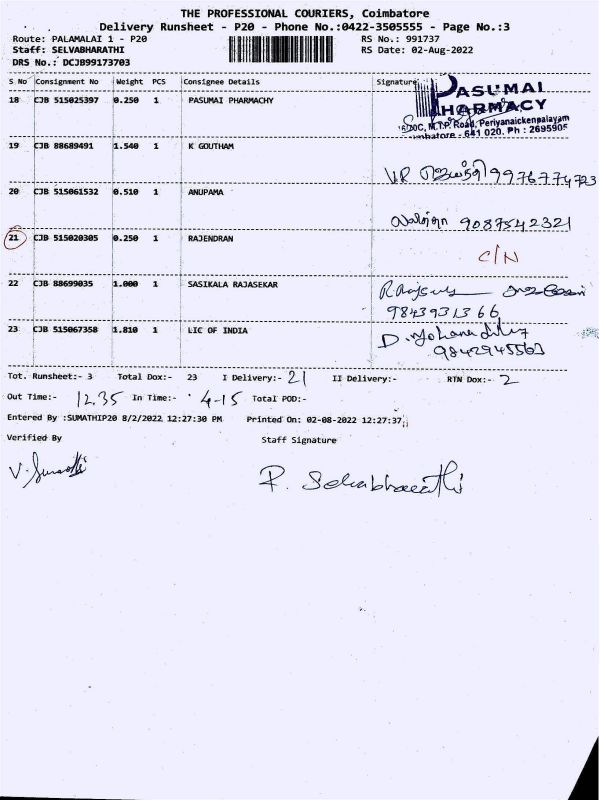 THE PROFESSIONAL COURIERS, Coimbatore
Delivery Runsheet - P20 - Phone No.:0422-3505555 - Page No.:3
Route: PALAMALAI 1 - P20 RS No.: 991737
Staff: SELVABHARATHI RS Date: 02-Aug-2022
DRS No.: DCJB99173703
S No Consignment No Weight PCS Consignee Details Signature
PASUMAI
PHARMACY
M.T.P. Road, Periyanaickenpalayam
641 020. Ph : 2695905
18 CJB 515025397 0.250 1 PASUMAI PHARMACHY
19 CJB 88689491 1.540 1 K GOUTHAM
V.R 9976774723
20 CJB 515061532 0.510 1 ANUPAMA
9087542321
21 CJB 515020305 0.250 1 RAJENDRAN
C/N
22 CJB 88699035 1.000 1 SASIKALA RAJASEKAR
9843931366
23 CJB 515067358 1.810 1 LIC OF INDIA
9842945563
Tot. Runsheet:- 3 Total Dox:- 23 I Delivery:- 21 II Delivery:- RTN Dox:- 2
Out Time:- 12.35 In Time:- 4-15 Total POD:-
Entered By :SUMATHIP20 8/2/2022 12:27:30 PM Printed On: 02-08-2022 12:27:37
Verified By Staff Signature
V. Sumathi R. Selvabharathi